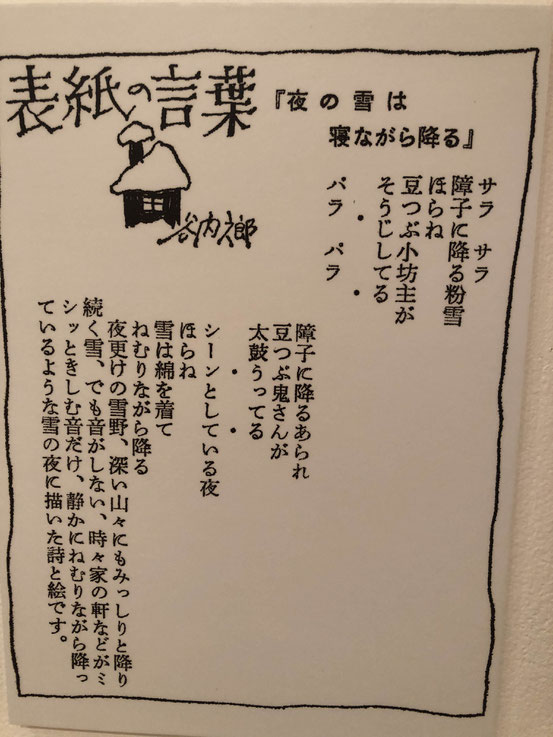 表紙の言葉
谷内六郎
『夜の雪は
寝ながら降る』
サラ　サラ
障子に降る粉雪
ほらね
豆つぶ小坊主が
そうじしてる
・　・
パラ　パラ
障子に降るあられ
豆つぶ鬼さんが
太鼓うってる
・　・
シーンとしている夜
ほらね
雪は綿を着て
ねむりながら降る
夜更けの雪野、深い山々にもみっしりと降り
続く雪、でも音がしない、時々家の軒などがミ
シッときしむ音だけ、静かにねむりながら降っ
ているような雪の夜に描いた詩と絵です。